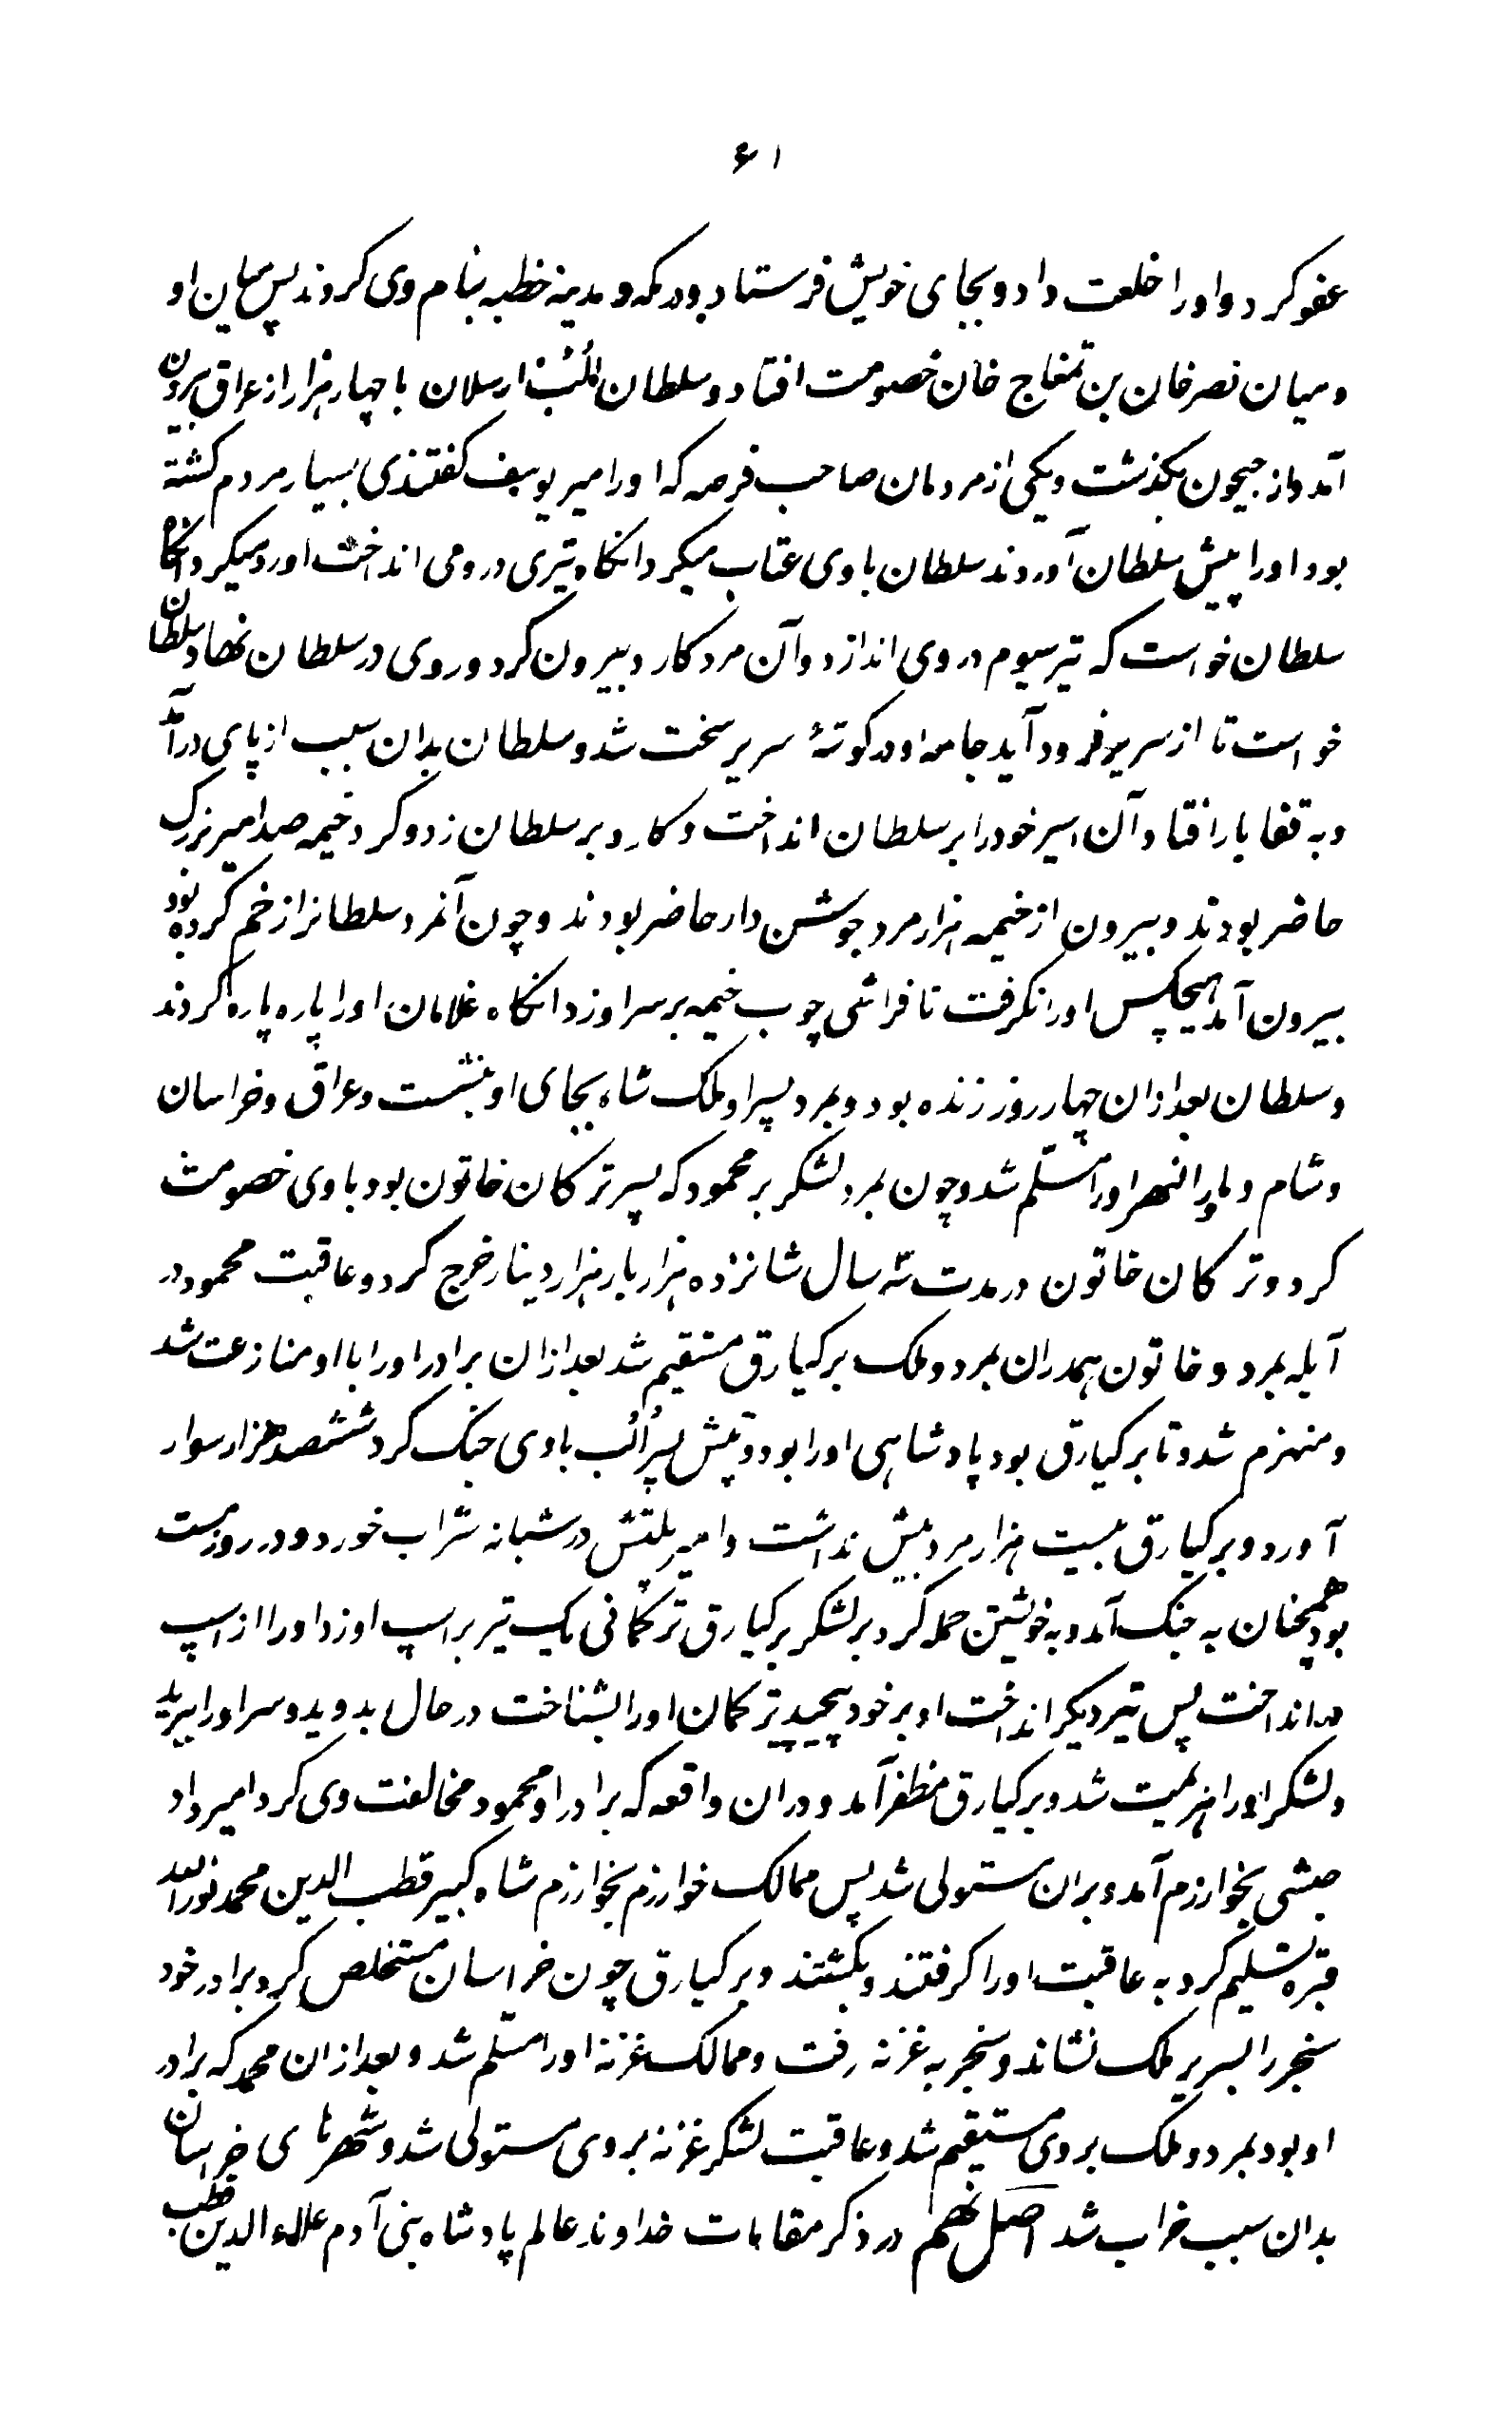 ۶۱
عفو کرد و او را خلعت داد و بجای خویش فرستاد و در مکه و مدینه خطبه بنام وی کردند پس میان او
و میان نصر خان بن تمغاج خان خصومت افتاد و سلطان الب ارسلان با چهار هزار از عراق بیرون
آمد و از جیحون بگذشت و یکی از مردمان صاحب فرصه که او را میر یوسف گفتندی بسیار مردم کشته
بود او را پیش سلطان آوردند سلطان با وی عتاب میکرد انگاه تیری در وی انداخت او رد میکرد انگاه
سلطان خواست که تیر سیوم در وی اندازد و آن مرد کارد بیرون کرد و روی در سلطان نهاد سلطان
خواست تا از سریر فرود آید جامه او در گوشهٔ سریر سخت شد و سلطان بدان سبب از پای درآمد
و به قفا باز افتاد آن اسیر خود را بر سلطان انداخت و کارد بر سلطان زد و گرد خیمه صد امیر بزرگ
حاضر بودند و بیرون از خیمه هزار مرد جوشن دار حاضر بودند و چون آنمرد سلطانرا زخم کرده بود
بیرون آمد هیچکس او را نگرفت تا فراشی چوب خیمه بر سر او زد انگاه غلامان او را پاره پاره کردند
و سلطان بعد ازان چهار روز زنده بود و بمرد پسر او ملک شاه بجای او بنشست و عراق و خراسان
و شام و ماورالنهر او را مسلّم شد و چون بمرد لشکر بر محمود که پسر ترکان خاتون بود با وی خصومت
کرد و ترکان خاتون در مدت سه سال شانزده هزار بار هزار دینار خرج کرد و عاقبت محمود در
آبله بمرد و خاتون همدران بمرد و ملک برکیارق مستقیم شد بعد ازان برادر او را با او منازعت شد
و منهزم شد و تا برکیارق بود پادشاهی او را بود و تتش پسر الب با وی جنگ کرد ششصد هزار سوار
آورد و برکیارق بیست هزار مرد بیش نداشت و امیر تتش در شبانه شراب خورد و در روز مست
بود همچنان به جنگ آمد و به خویشتن حمله کرد بر لشکر برکیارق ترکمانی یک تیر بر اسپ او زد او را از اسپ
در انداخت پس تیر دیگر انداخت او بر خود پیچید ترکمان او را بشناخت در حال بدوید و سر او را ببرید
و لشکر او را هزیمت شد و برکیارق مظفر آمد و دران واقعه که برادر او محمود مخالفت وی کرد امیر داد
حبشی بخوارزم آمد و بران مستولی شد پس ممالک خوارزم بخوارزم شاه کبیر قطب الدین محمد نور الله
قبره تسلیم کرد به عاقبت او را گرفتند و بکشتند و برکیارق چون خراسان مستخلص کرد برادر خود
سنجر را بسریر ملک نشاند و سنجر به غزنه رفت و ممالک غزنه او را مسلّم شد و بعد ازان محمد که برادر
او بود بمرد و ملک بر وی مستقیم شد و عاقبت لشکر غزنه بر وی مستولی شد و شهرهای خراسان
بدان سبب خراب شد اصل نهم در ذکر مقامات خداوند عالم پادشاه بنی آدم علاء الدین قطب